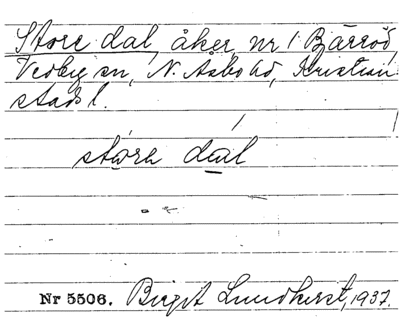 Store dal, åker, nr 1 Bärröd,
Vedby sn, N. Åsbo hd, Kristian
stads l.
störa dal
Nr 5506. Birgit Lundkvist, 1937.